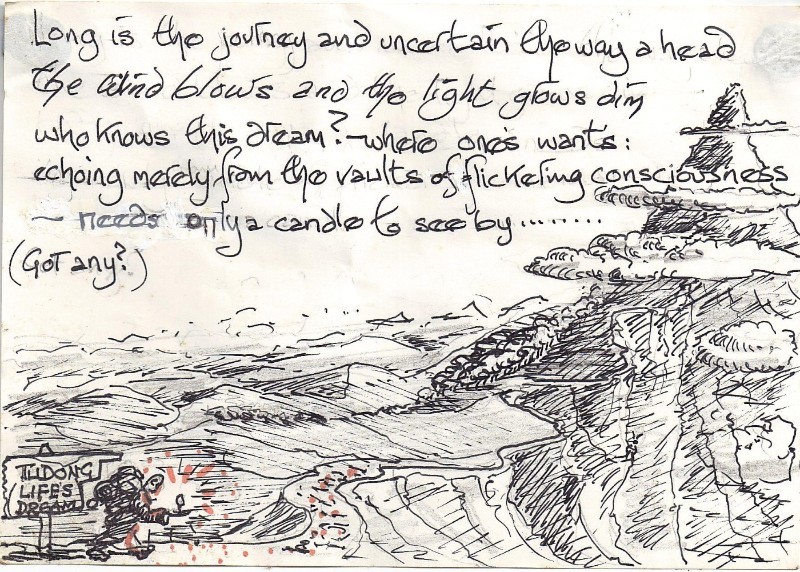 Long is the journey and uncertain the way ahead
the wind blows and the light grows dim
who knows this dream? – where one's wants:
echoing merely from the vaults of flickering consciousness
~ needs only a candle to see by ........
(Got any?)
TUDONG
LIFE'S
DREAM